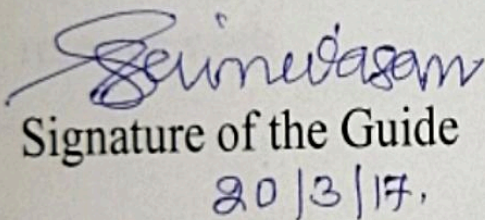 Srinivasan
Signature of the Guide
20/3/17.